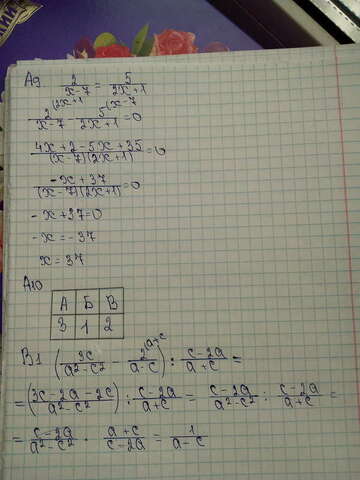 А9. 2/(x-7) = 5/(2x+1)
2^(2x+1/(x-7) - 5^(x-7/(2x+1) = 0
(4x+2-5x+35)/((x-7)(2x+1)) = 0
(-x+37)/((x-7)(2x+1)) = 0
-x+37=0
-x=-37
x=37
А10
А Б В
3 1 2
В1 (3c/(a²-c²) - 2^(a+c/(a-c)) : (c-2a)/(a+c) =
= ((3c-2a-2c)/(a²-c²)) : (c-2a)/(a+c) = (c-2a)/(a²-c²) : (c-2a)/(a+c) =
= (c-2a)/(a²-c²) · (a+c)/(c-2a) = 1/(a-c)